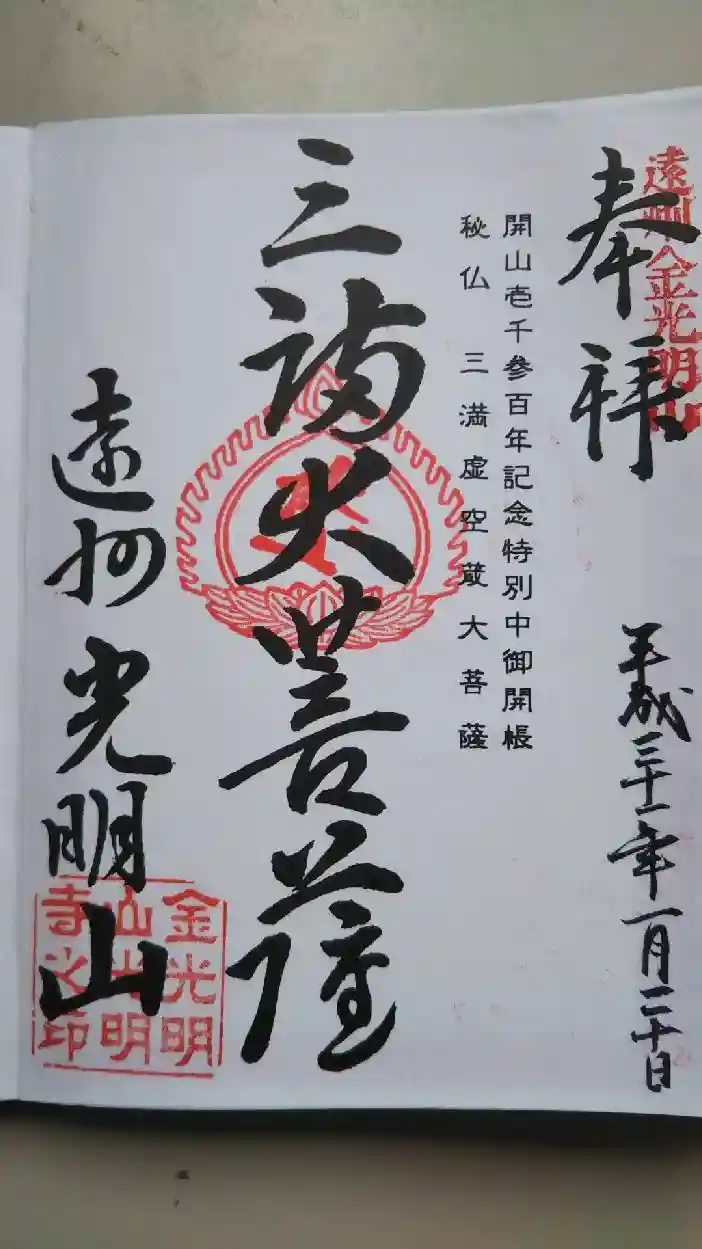 遠州金光明山
奉拝
平成三十一年一月二十日
開山壱千参百年記念特別中御開帳
秘仏 三満虚空蔵大菩薩
三満大菩薩
遠州光明山
金光明
山光明
寺之印